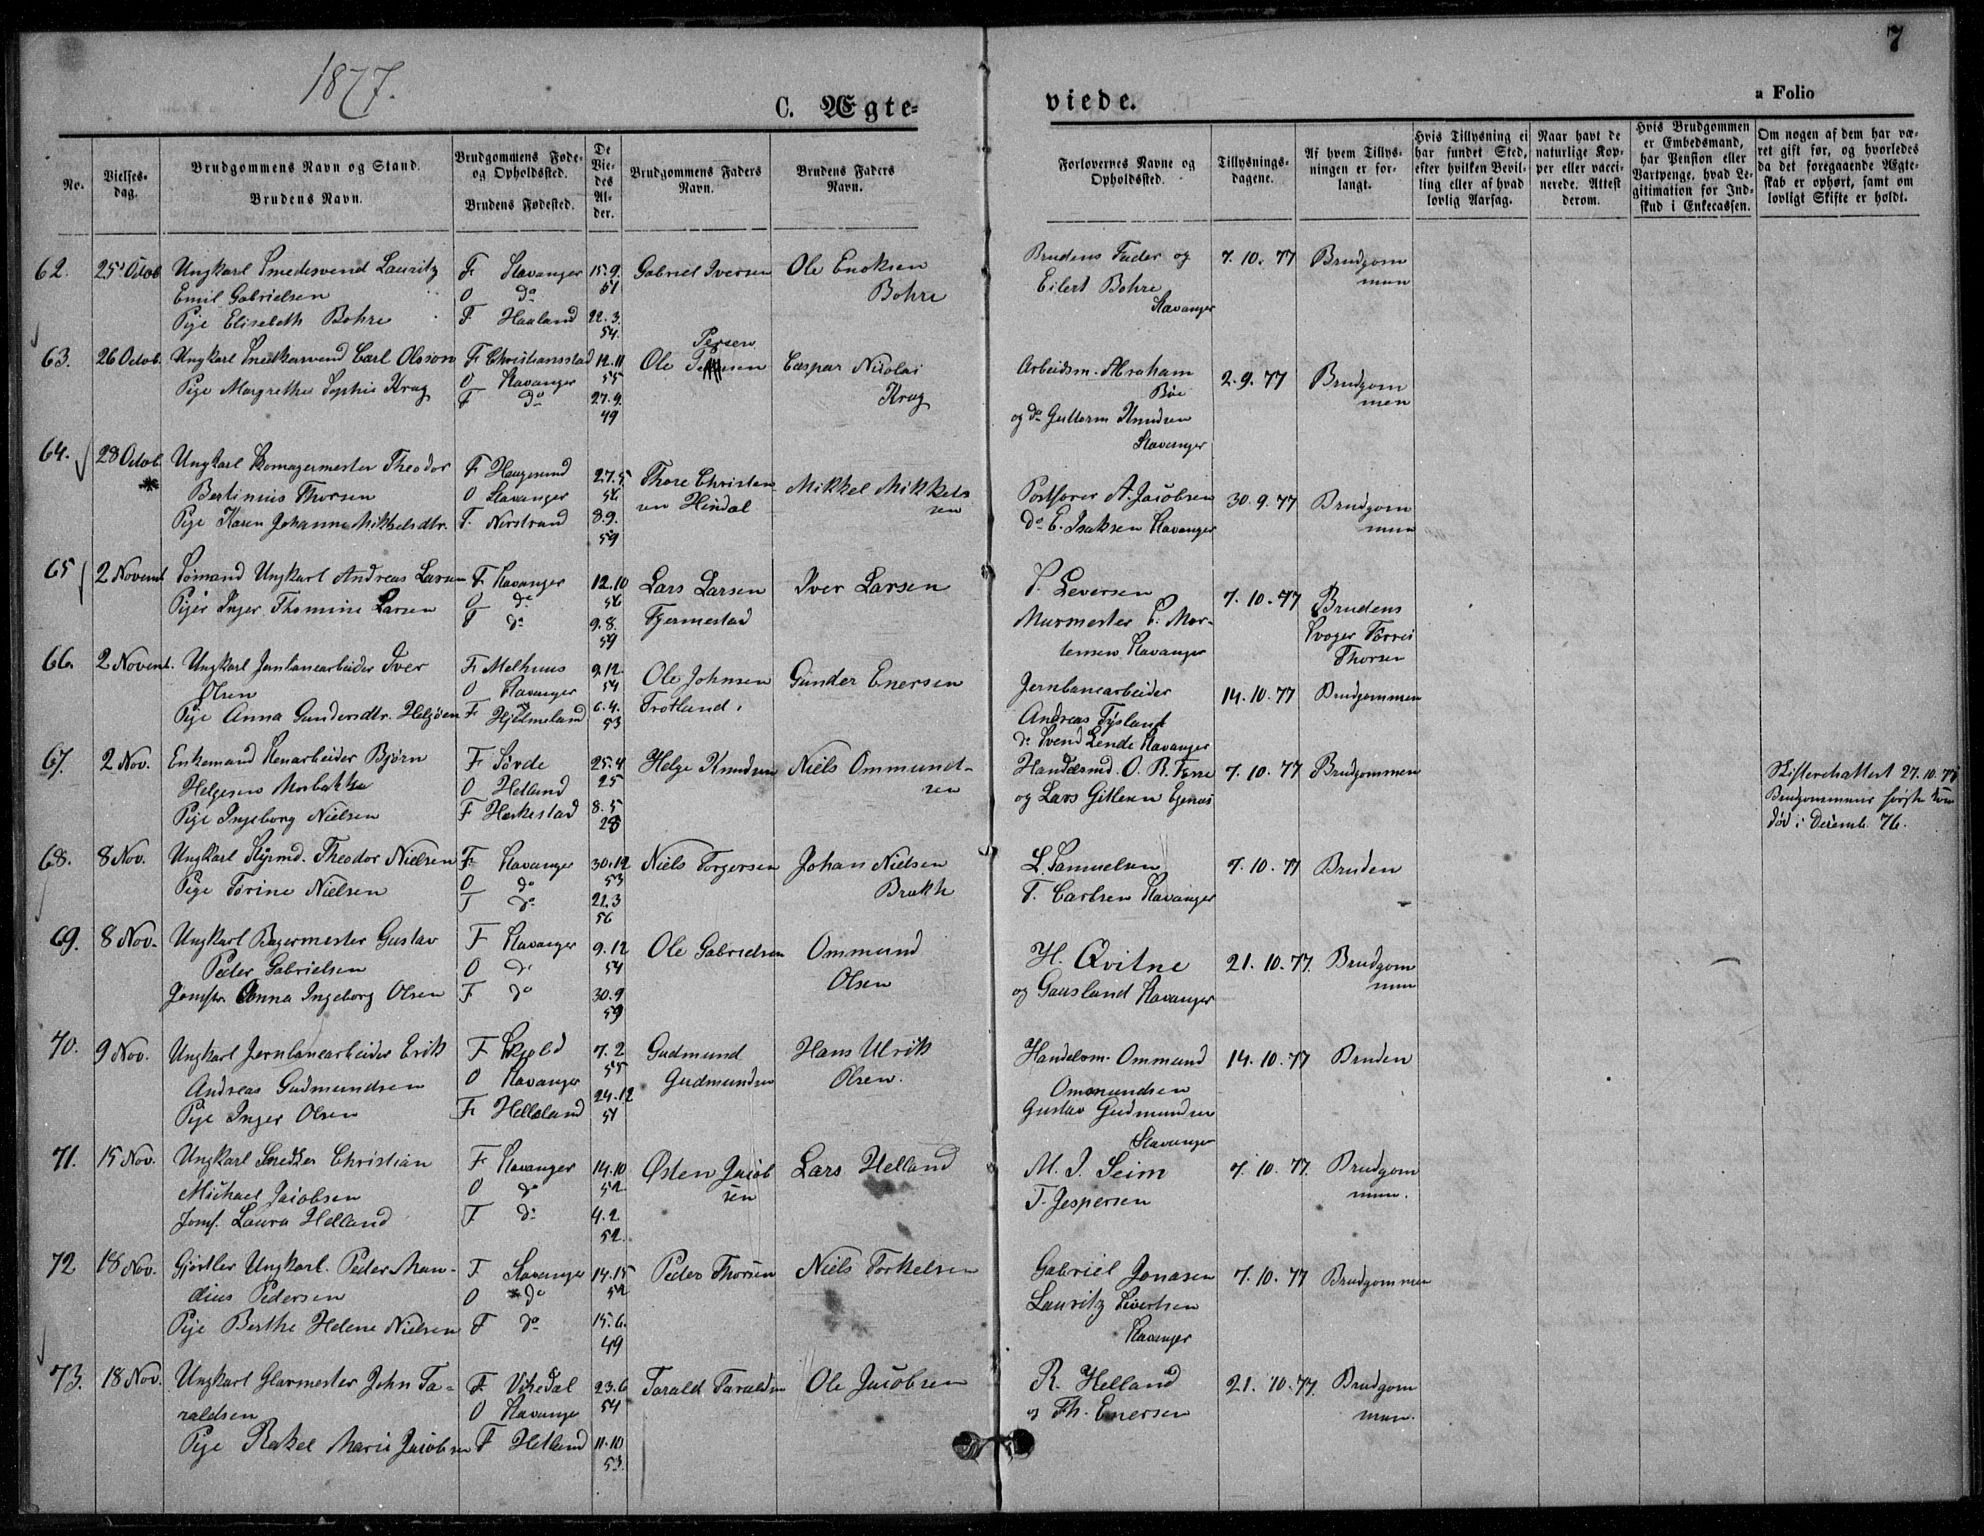 1877.
7
C. Ægte-
viede.
a Folio
No.
Vielses-
dag.
Brudgommens Navn og Stand.
Brudens Navn.
Brudgommens Føde-
og Opholdssted.
Brudens Fødested.
De
Vie-
des
Al-
der.
Brudgommens Faders
Navn.
Brudens Faders
Navn.
Forlovernes Navne og
Opholdssted.
Tillysnings-
dagene.
Af hvem Tillys-
ningen er for-
langt.
Hvis Tillysning ei
har fundet Sted,
efter hvilken Bevil-
ling eller af hvad
lovlig Aarsag.
Naar havt de
naturlige Kop-
per eller vacci-
nerede. Attest
derom.
Hvis Brudgommen
er Embedsmand,
har Pension eller
Vartpenge, hvad Le-
gitimation for Ind-
skud i Enkecassen.
Om nogen af dem har væ-
ret gift før, og hvorledes
da det foregaaende Ægte-
skab er ophørt, samt om
lovligt Skifte er holdt.
62. 25' Octob Ungkarl Smedesvend Lauritz F. Stavanger 15.9. Gabriel Iversen Ole Enoksen Brudens Fader og 7.10.77 Brudgom
Emil Gabrielsen O do 51 Bohre Eilert Bohre men
Pige Elisebeth Bohre F. Haaland 22.3. Stavanger
54.
63. 26 Octob. Ungkarl Snedkersvend Carl Olsson F. Christiansstad 12.11 Ole Persen Caspar Nicolai Arbeidsm. Abraham 2.9.77 Brudgom
Pige Margrethe Sophie Krag O Stavanger 55 Krag Bøe men
F do 27.9. og do Guttorm Knudsen
49 Stavanger
64. 28 Octob. Ungkarl Skomagermester Theodor F. Haugesund 27.5 Thore Christen- Mikkel Mikkels Postfører A. Jacobsen 30.9.77 Brudgom
Bertinius Thorsen O Stavanger 56 sen Hindal sen do E. Isaksen Stavanger men
Pige Karen Johanne Mikkelsdtr. F. Nerstrand 8.9.
59
65 2 Novemb. Sømand Ungkarl Andreas Larsen F. Stavanger 12.10 Lars Larsen Iver Larsen Leversen 7.10.77 Brudens
Pige Inger Thomine Larsen O do 56 Tjermestad Murmester Mor- Svoger Tørris
F do 9.8. tensen Stavanger Thorsen
59
66. 2 Novemb. Ungkarl Jernbanearbeider Iver F. Melhuus 9.12. Ole Johnsen Gunder Enersen Jernbanearbeider 14.10.77 Brudgommen
Olsen O Stavanger 54 Trotland Andreas Tysland
Pige Anna Gundersdtr. Helgøen F. Hjelmeland 6.4. do Svend Lende Stavanger
53
67. 2 Nov. Enkemand Stenarbeider Bjørn F Førde 25.4. Helge Knudsen Niels Ommund- Handelsmd. O. R. Tyse 7.10.77 Brudgommen Skifteretsattest 27.10.77
Helgesen Morbakka O Hetland 25 sen og Lars Gitlesen Egenæs Brudgommens første Kone
Pige Ingeborg Nielsen F. Heskestad 8.5 død i Decemb. 76.
28
68. 8 Nov. Ungkarl Styrmd. Theodor Nielsen F. Stavanger 30.12 Niels Torgersen Johan Nielsen L. Samuelsen 7.10.77 Bruden
Pige Torine Nielsen O do 53 Brakh T. Carlsen Stavanger
F do 22.3
56
69. 8 Nov. Ungkarl Bagermester Gustav F Stavanger 9.12 Ole Gabrielsen Ommund H. Qvitne 21.10.77. Brudgom
Peder Gabrielsen O do 54 Olsen og Gausland Stavanger men
Jomfr. Anna Ingeborg Olsen F do 30.9
59
70. 9 Nov. Ungkarl Jernbanearbeider Erik F Skjold 7.2 Gudmund Hans Ulrik Handelsm. Ommund 14.10.77 Bruden
Andreas Gudmundsen O Stavanger 55 Gudmundsen Olsen. Ommundsen
Pige Inger Olsen F. Helleland 24.12 Gustav Gudmundsen
51 Stavanger
71. 15 Nov. Ungkarl Snedker Christian F. Stavanger 14.10 Østen Jacob Lars Helland M. J. Seim 7.10.77. Brudgom
Michael Jacobsen O do 52 sen T. Jespersen men.
Jomf. Laura Helland F. do 4.2.
52.
72 18 Nov. Gjørtler Ungkarl. Peder Man- F Stavanger 14.15 Peder Thorsen Niels Torkelsen Gabriel Jonasen 7.10.77 Brudgommen
dius Pedersen O do 52 Lauritz Sivertsen
Pige Berthe Helene Nielsen F do 15.6. Stavanger
49
73. 18 Nov. Ungkarl Glarmester John Ta- F. Vikedal 23.6 Tarald Taraldsen Ole Jacobsen R. Helland 21.10.77. Brudgom
raldsen O Stavanger 54 og Th. Enersen men.
Pige Rakel Marie Jacobsen F Hetland 11.10
53.